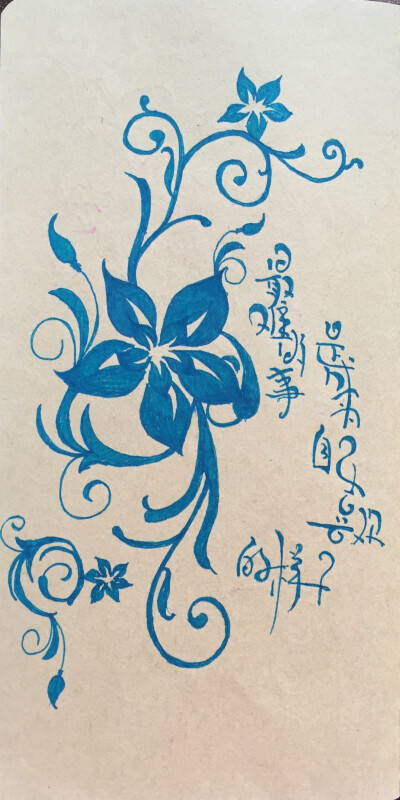 最难的事
是成为自己喜欢
的样子